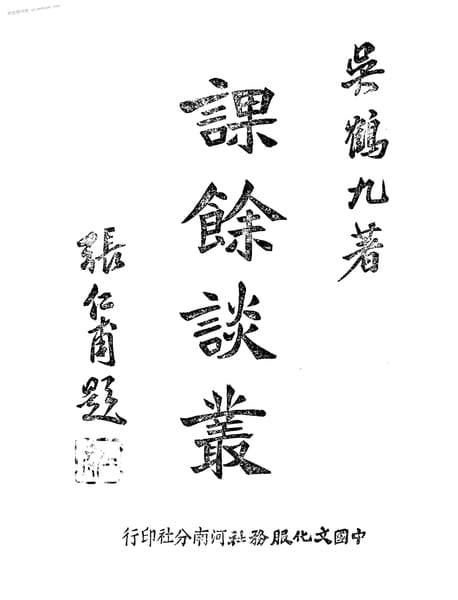 吳鶴九著
課餘談叢
張仁甫題
中國文化服務社河南分社印行